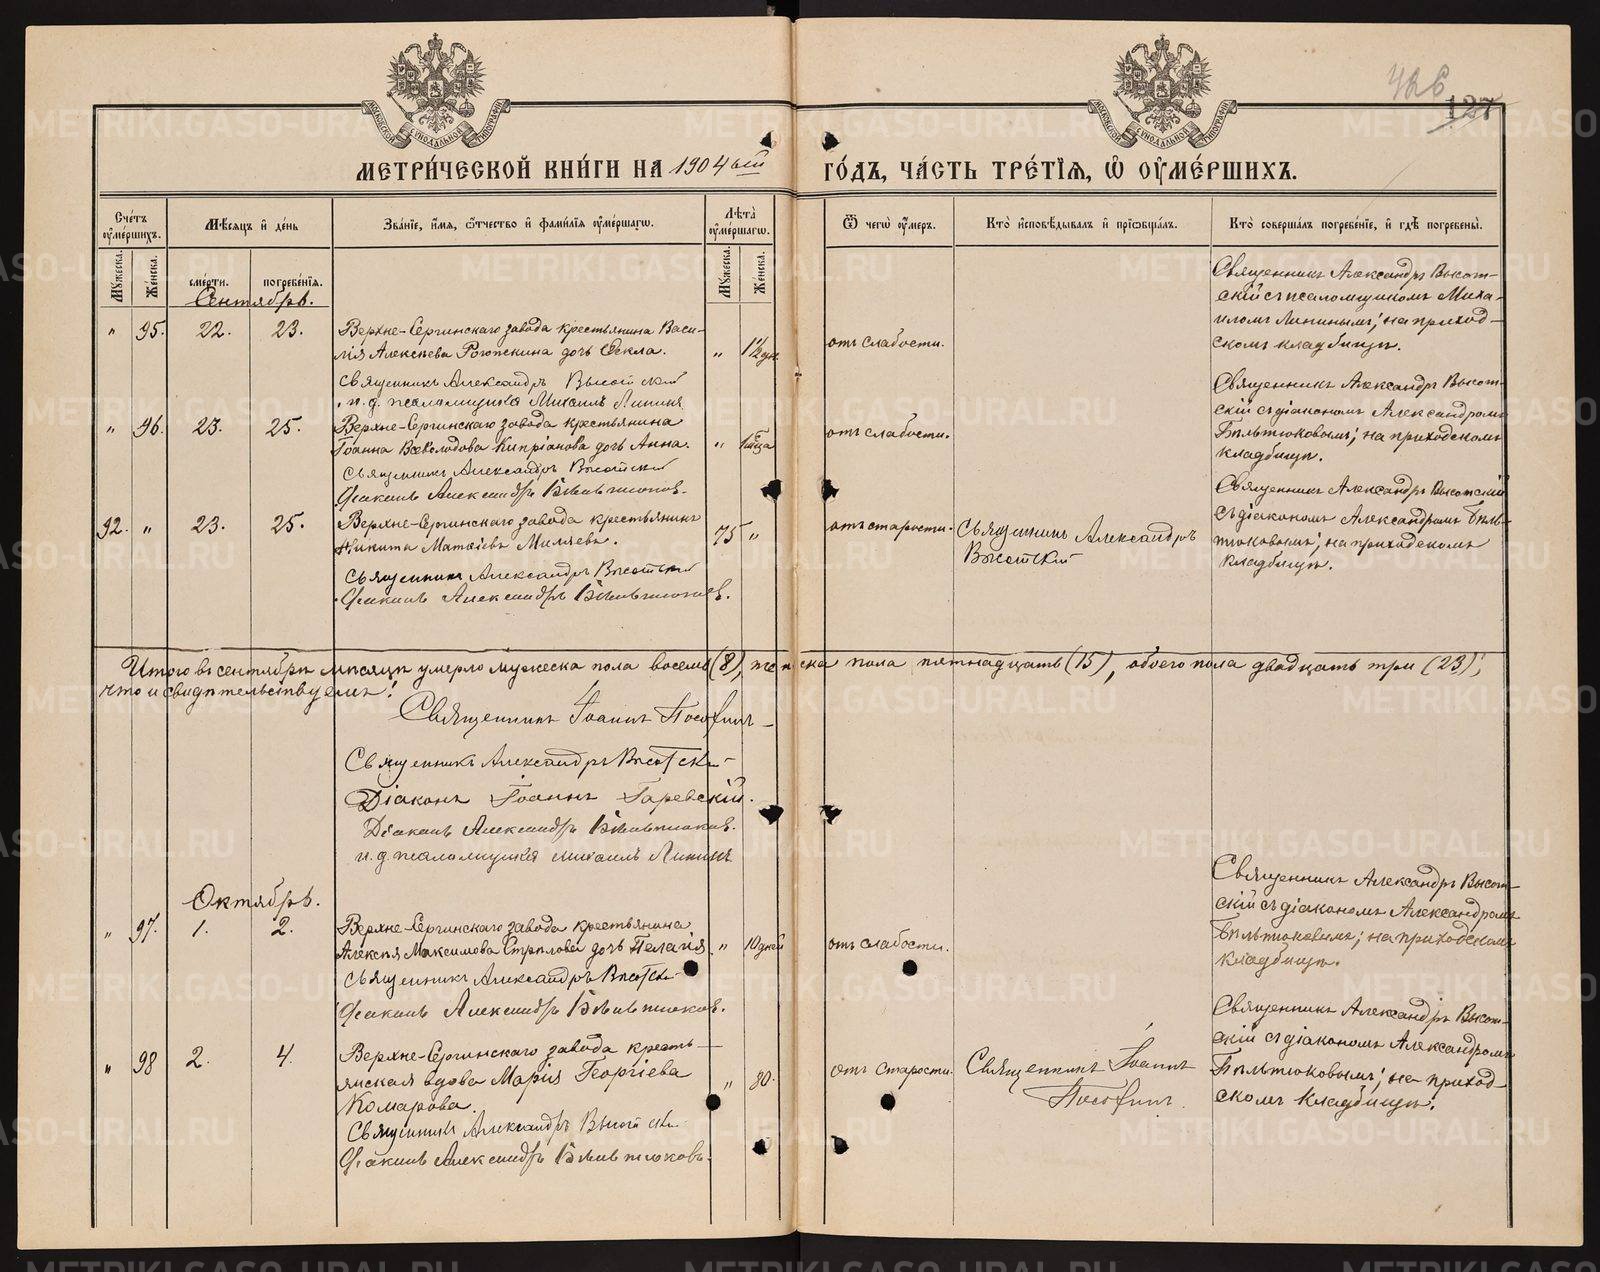 426
127
МЕТРИ́ЧЕСКОЙ КНИ́ГИ НА 1904ый ГО́ДЪ, ЧА́СТЬ ТРЕ́ТІѦ, Ѡ҆ ОУ҆МЕ́РШИХЪ.
Сче́тъ оу҆ме́ршихъ.
Мѣ́сѧцъ и҆ де́нь
Зва́нїе, и҆́мѧ, ѻ҆́тчество и҆ фами́лїѧ оу҆ме́ршагѡ.
Лѣ́та оу҆ме́ршагѡ.
Ѿ чегѡ̀ оу҆́меръ.
Кто̀ и҆сповѣ́дывалъ и҆ прїѡбща́лъ.
Кто̀ соверша́лъ погребе́нїе, и҆ гдѣ̀ погребены̀.
Мꙋ́жеска.
Же́нска.
сме́рти.
погребе́нїѧ.
Мꙋ́жеска.
Же́нска.
Сентябрь.
" 95. 22. 23.
Верхне-Сергинскаго завода крестьянина Васи-
лія Алексѣева Рогожкина дочь Ѳекла.
" 1½ дн.
отъ слабости.
Священникъ Александръ Высот-
скій съ псаломщикомъ Миха-
иломъ Липинымъ; на приход-
скомъ кладбищѣ.
Священникъ Александръ Высотскій
и. д. псаломщика Михаилъ Липинъ
" 96. 23. 25.
Верхне-Сергинскаго завода крестьянина
Іоанна Всеволодова Кипріанова дочь Анна.
отъ слабости.
Священникъ Александръ Высот-
скій съ діакономъ Александромъ
Бѣльтюковымъ; на приходскомъ
кладбищѣ.
Священникъ Александръ Высотскій
Діаконъ Александръ Бѣльтюковъ.
92. " 23. 25.
Верхне-Сергинскаго завода крестьянинъ
Никита Матѳіевъ Миляевъ.
75 "
отъ старости.
Священникъ Александръ
Высотскій
Священникъ Александръ Высотскій
съ діакономъ Александромъ Бѣль-
тюковымъ; на приходскомъ
кладбищѣ.
Священникъ Александръ Высотскій
Діаконъ Александръ Бѣльтюковъ.
Итого въ сентябрѣ мѣсяцѣ умерло мужеска пола восемь (8), женска пола пятнадцать (15), обоего пола двадцать три (23);
что и свидѣтельствуемъ:
Священникъ Іоаннъ
Священникъ Александръ Высотскій
Діаконъ Іоаннъ Гаревскій.
Діаконъ Александръ Бѣльтюковъ.
и. д. псаломщика Михаилъ Липинъ
Октябрь.
" 97. 1. 2.
Верхне-Сергинскаго завода крестьянина
Алексія Максимова Стрѣлова дочь Пелагія.
" 10 дней
отъ слабости.
Священникъ Александръ Высот-
скій съ діакономъ Александромъ
Бѣльтюковымъ; на приходскомъ
кладбищѣ.
Священникъ Александръ Высотскій
Діаконъ Александръ Бѣльтюковъ.
" 98 2. 4.
Верхне-Сергинскаго завода кресть-
янская вдова Марія Георгіева
Комарова.
" 80.
отъ старости.
Священникъ Іоаннъ
Священникъ Александръ Высот-
скій съ діакономъ Александромъ
Бѣльтюковымъ; на приход-
скомъ кладбищѣ.
Священникъ Александръ Высотскій
Діаконъ Александръ Бѣльтюковъ.
METRIKI.GASO-URAL.RU